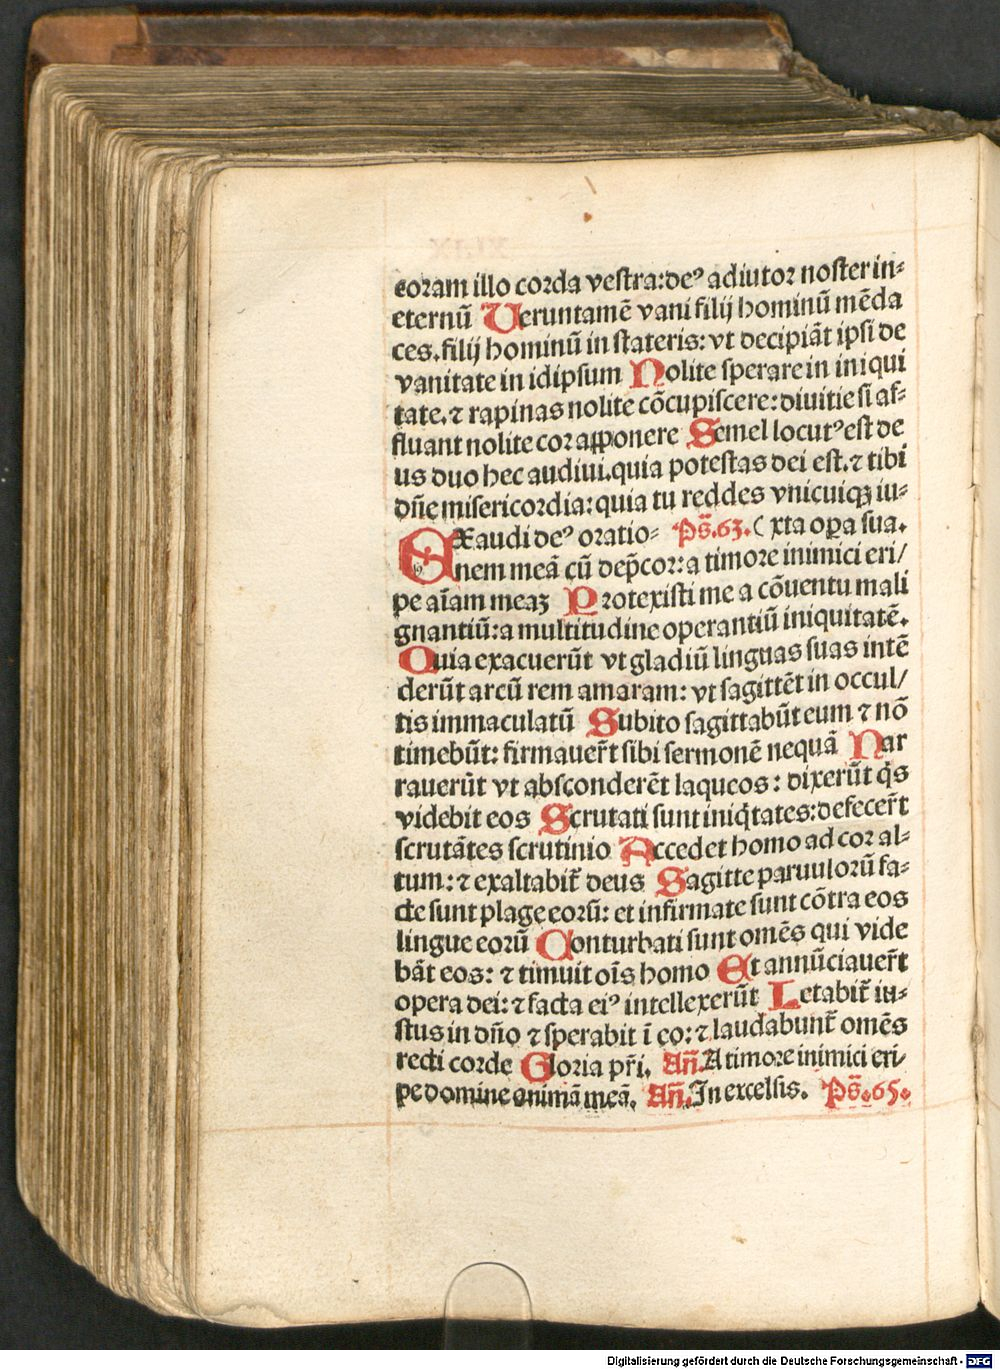 coram illo corda vestra:de⁹ adiutor noster in⸗
eternū Veruntamē vani filij hominū mēda
ces.filij hominū in stateris: vt decipiāt ipsi de
vanitate in idipsum Nolite sperare in iniqui
tate.⁊ rapinas nolite cōcupiscere:diuitie si af⸗
fluant nolite cor apponere Semel locut⁹ est de
us duo hec audiui.quia potestas dei est.⁊ tibi
dn̄e misericordia: quia tu reddes vnicuiqꝫ iu⸗
EXaudi de⁹ oratio⸗ Ps̄.63. ( xta oꝑa sua.
nem meā cū dep̄cor: a timore inimici eri/
pe aīam meaꝫ Protexisti me a cōuentu mali
gnantiū: a multitudine operantiū iniquitatē.
Quia exacuerūt vt gladiū linguas suas intē
derūt arcū rem amaram: vt sagittēt in occul/
tis immaculatū Subito sagittabūt eum ⁊ nō
timebūt: firmauer̄t sibi sermonē nequā Nar
rauerūt vt absconderēt laqueos: dixerūt q̄s
videbit eos Scrutati sunt iniq̄tates:defecer̄t
scrutātes scrutinio Accedet homo ad cor al⸗
tum: ⁊ exaltabit̄ deus Sagitte paruulorū fa⸗
cte sunt plage eorū: et infirmate sunt cōtra eos
lingue eorū Conturbati sunt omēs qui vide
bāt eos: ⁊ timuit oīs homo Et annūciauer̄t
opera dei: ⁊ facta ei⁹ intellexerūt Letabit̄ iu⸗
stus in dn̄o ⁊ sperabit ī eo: ⁊ laudabunt̄ omēs
recti corde Gloria pr̄i. Añ. A timore inimici eri⸗
pe domine animā meā. Añ. In excelsis. Ps̄.65.
Digitalisierung gefördert durch die Deutsche Forschungsgemeinschaft - DFG